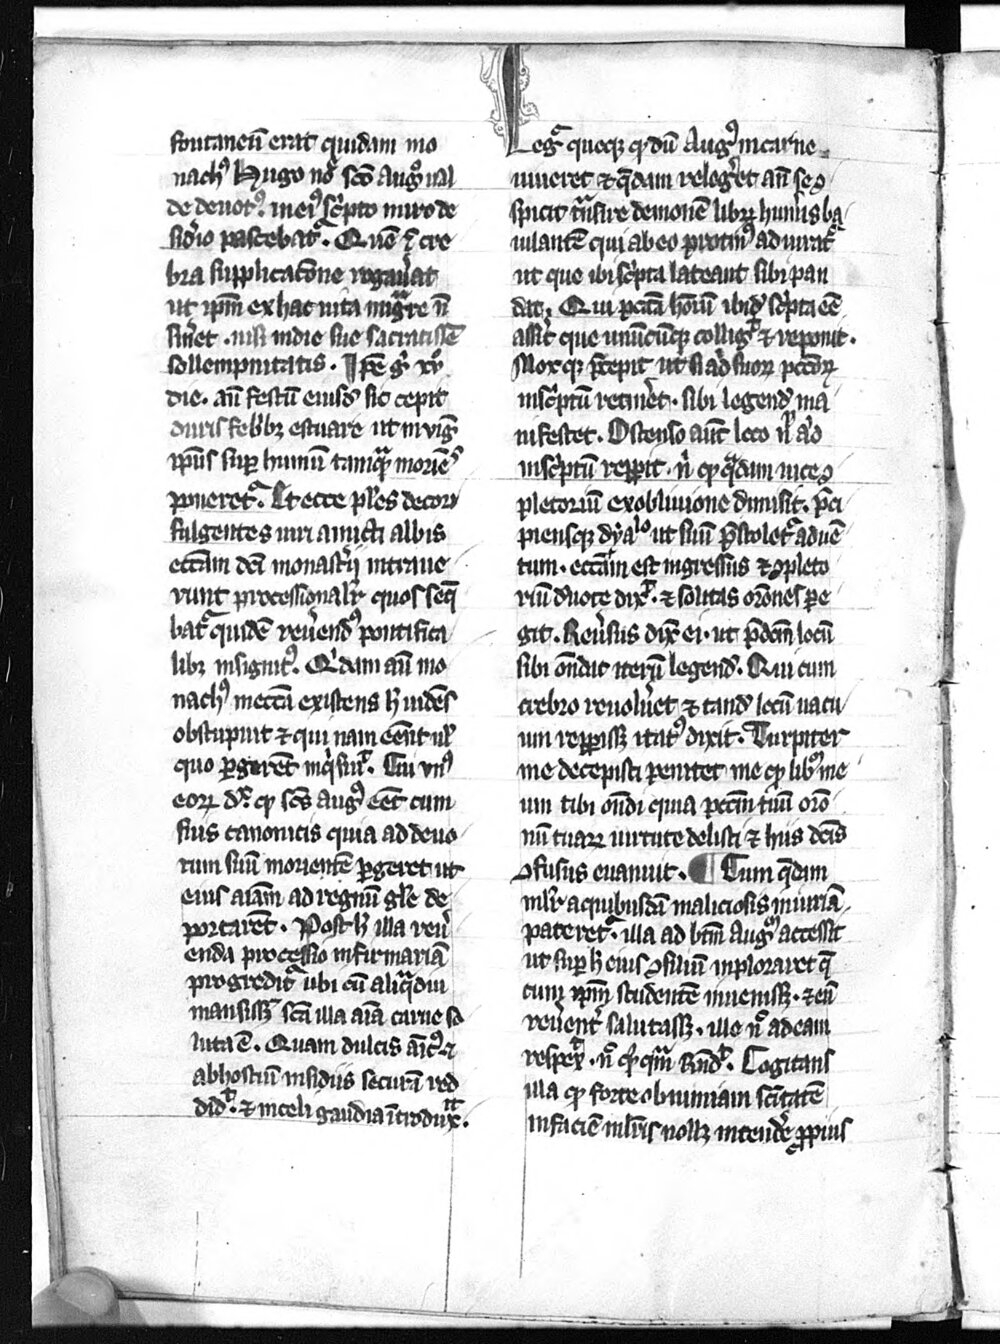 fontaneū erat quidam mo
nachꝰ Hugo noīe sc̄o Augꝰ ual
de deuotꝰ. in eiꝰ sc̓pto miro de
sid̓io pascebat᷑. Quē ⁊ cre
bra supplicatōne rogau̓at
ut ip̄m ex hac uita migᷓre n̄
sin̓et . nisi in die sue sacratissīe
sollempnitatis . Ipse g̓ xvͦ
die . an̄ festū eiusdē sic cepit
duris feb̓bꝫ estuare ut in vigiͣ
ip̄ius suꝑ humū tamqᷓ moriēs
poneret᷑. Et ecce pl̓es decori
fulgentes uiri amicti albis
eccīam dc̄i monast̓ij intraue
runt processionalr̓ quos seqͥ
bat᷑ quidē reu̓endꝰ pontifica
libꝫ insignitꝰ. Qͥdam aūt mo
nachꝰ in eccīa existens h̓ uidēs
obstupuit ⁊ qui nam eēnt uͥl
quo ꝑgerēt inqͥsiuit. Cui vnꝰ
eoꝝ dr̄. qꝫ sc̄s Augꝰ eēt cum
suis canonicis quia ad deuo
tum suū morientē ꝑgeret ut
eius aīam ad regnū gl̓e de
portaret . Post h̓ illa reu̓
enda processio infirmariā
progredit᷑ ubi cū aliqᷓdiu
mansissꝫ sc̄a illa aīa carne so
luta ē . Quam dulcis amicꝰ
ab hostiū insidiis securā red
didit . ⁊ in celi gaudia ītroduxit.
Legit᷑ quoqꝫ qꝫ dū Augꝰ in carne
uiueret ⁊ qͦdam releg̓et an̄ se ꝯ
spicit trͣnsire demonē librū hum̓is ba
iulantē qui ab eo protinꝰ adiurat᷑
ut que ibi sc̓pta lateant sibi pan
dat. Qui pcc̄a hōīum ibidē sc̓pta eē
asserit que undecūqꝫ collig̓it ⁊ reponit .
Moxqꝫ p̄cepit ut si ad̓ suoꝝ pcc̄oꝝ
insc̓ptū retin̓et . sibi legendū ma
nifestet . Ostenso aūt loco nͥl ad̓
insc̓ptū repperit . nͥ qꝫ qᷓdam uice ꝯ
pletoriū ex obliuione dimisit . p̄ci
piensqꝫ dyabolo ut suū p̄stolet᷑ aduē
tum . eccīam est ingressus ⁊ ꝯpleto
riū deuote dixit . ⁊ solitas or̄ones ꝑe
git . Reu̓sus dixit ei . ut p̄dc̄m locū
sibi oñdat iterū legendū. Qui cum
crebro reuolu̓et ⁊ tandē locū uacu
um repperissꝫ iratꝰ dixit . Turpiter
me decepisti penitet me qꝫ libꝝ me
um tibi oñdi quia pcc̄m tuū or̄o
nū tuaꝝ uirtute delisti ⁊ hiis dc̄is
ꝯfusus euanuit . Cum qᷓdam
ml̓r a quibusdā maliciosis iniuriā
pateret᷑. illa ad bt̄m Augꝰ accessit
ut suꝑ h̓ eius ꝯsiliū inploraret q̄
cum ip̄m studentē inuenissꝫ . ⁊ eū
reu̓enter salutassꝫ . ille nͦ ad eam
respexit . nͦ qꝫ qͥcqͣm rn̄dit . Cogitans
illa qꝫ forte ob nimiam sc̄itatē
in faciē ml̓ris nollꝫ intend̓e ꝓpius